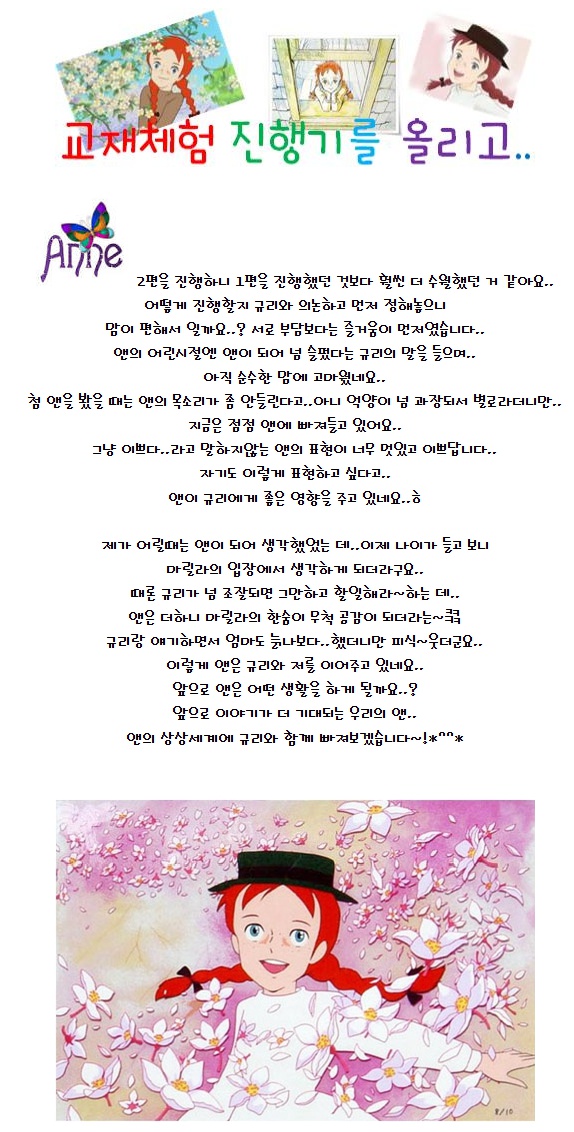 교재체험 진행기를 올리고..
Anne
2편을 진행하니 1편을 진행했던 것보다 훨씬 더 수월했던 거 같아요..
어떻게 진행할지 규리와 의논하고 먼저 정해놓으니
맘이 편해서 일까요..? 서로 부담보다는 즐거움이 먼저였습니다..
앤의 어린시절엔 앤이 되어 넘 슬펐다는 규리의 말을 들으며..
아직 순수한 맘에 고마웠네요..
첨 앤을 봤을 때는 앤의 목소리가 좀 안들린다고..아니 억양이 넘 과장되서 별로라더니만..
지금은 점점 앤에 빠져들고 있어요..
그냥 이쁘다..라고 말하지않는 앤의 표현이 너무 멋있고 이쁘답니다..
자기도 이렇게 표현하고 싶다고..
앤이 규리에게 좋은 영향을 주고 있네요..ㅎ
제가 어릴때는 앤이 되어 생각했었는 데..이제 나이가 들고 보니
마릴라의 입장에서 생각하게 되더라구요..
때론 규리가 넘 조잘되면 그만하고 할일해라~하는 데..
앤은 더하니 마릴라의 한숨이 무척 공감이 되더라는~ㅋㅋ
규리랑 얘기하면서 엄마도 늙나보다..했더니만 피식~웃더군요..
이렇게 앤은 규리와 저를 이어주고 있네요..
앞으로 앤은 어떤 생활을 하게 될까요..?
앞으로 이야기가 더 기대되는 우리의 앤..
앤의 상상세계에 규리와 함께 빠져보겠습니다~!*^^*
8/10